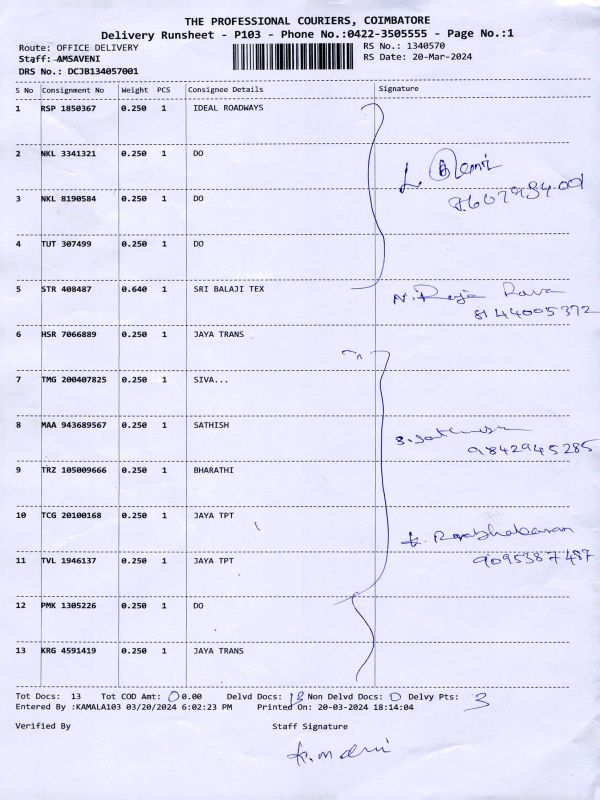 THE PROFESSIONAL COURIERS, COIMBATORE
Delivery Runsheet - P103 - Phone No.:0422-3505555 - Page No.:1
Route: OFFICE DELIVERY
RS No.: 1340570
Staff: AMSAVENI
RS Date: 20-Mar-2024
DRS No.: DCJB134057001
S No Consignment No Weight PCS Consignee Details Signature
1 RSP 1850367 0.250 1 IDEAL ROADWAYS
2 NKL 3341321 0.250 1 DO
3 NKL 8190584 0.250 1 DO
4 TUT 307499 0.250 1 DO
5 STR 408487 0.640 1 SRI BALAJI TEX N. Raja
8144005372
6 HSR 7066889 0.250 1 JAYA TRANS
7 TMG 200407825 0.250 1 SIVA...
8 MAA 943689567 0.250 1 SATHISH
9842945285
9 TRZ 105009666 0.250 1 BHARATHI
10 TCG 20100168 0.250 1 JAYA TPT
11 TVL 1946137 0.250 1 JAYA TPT 9095387487
12 PMK 1305226 0.250 1 DO
13 KRG 4591419 0.250 1 JAYA TRANS
Tot Docs: 13 Tot COD Amt: 0.00 Delvd Docs: 13 Non Delvd Docs: 0 Delvy Pts: 3
Entered By :KAMALA103 03/20/2024 6:02:23 PM Printed On: 20-03-2024 18:14:04
Verified By Staff Signature